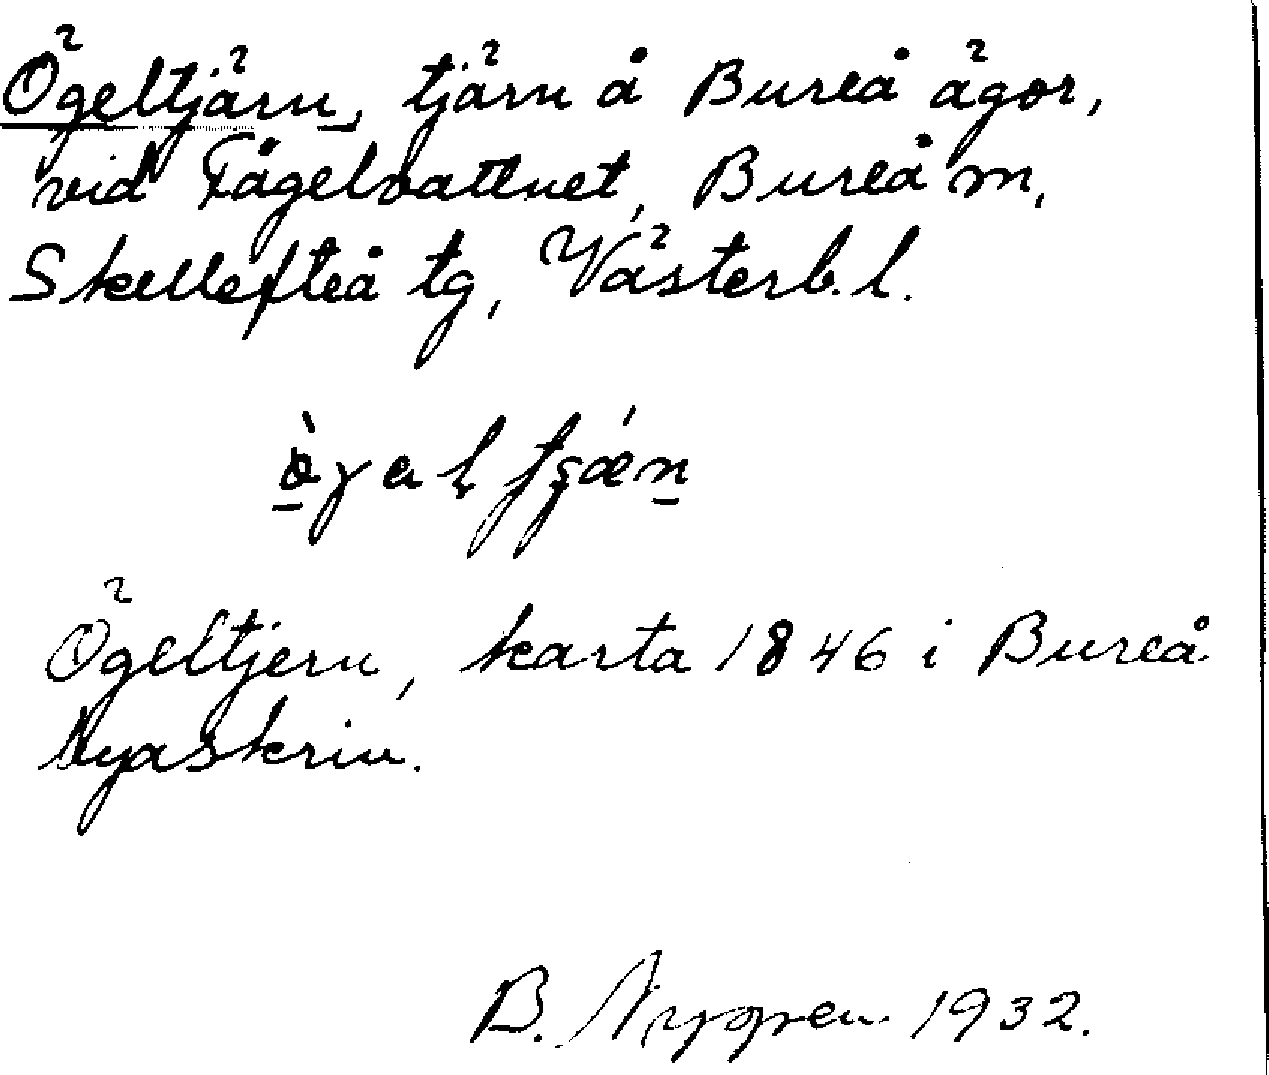 Ögeltjärn, tjärn å Bureå ägor,
vid Fågelvattnet, Bureå m,
Skellefteå tg, Västerb. l.
Ögeltjern, karta 1846 i Bureå
Nyaskriv.
B. Nygren 1932.